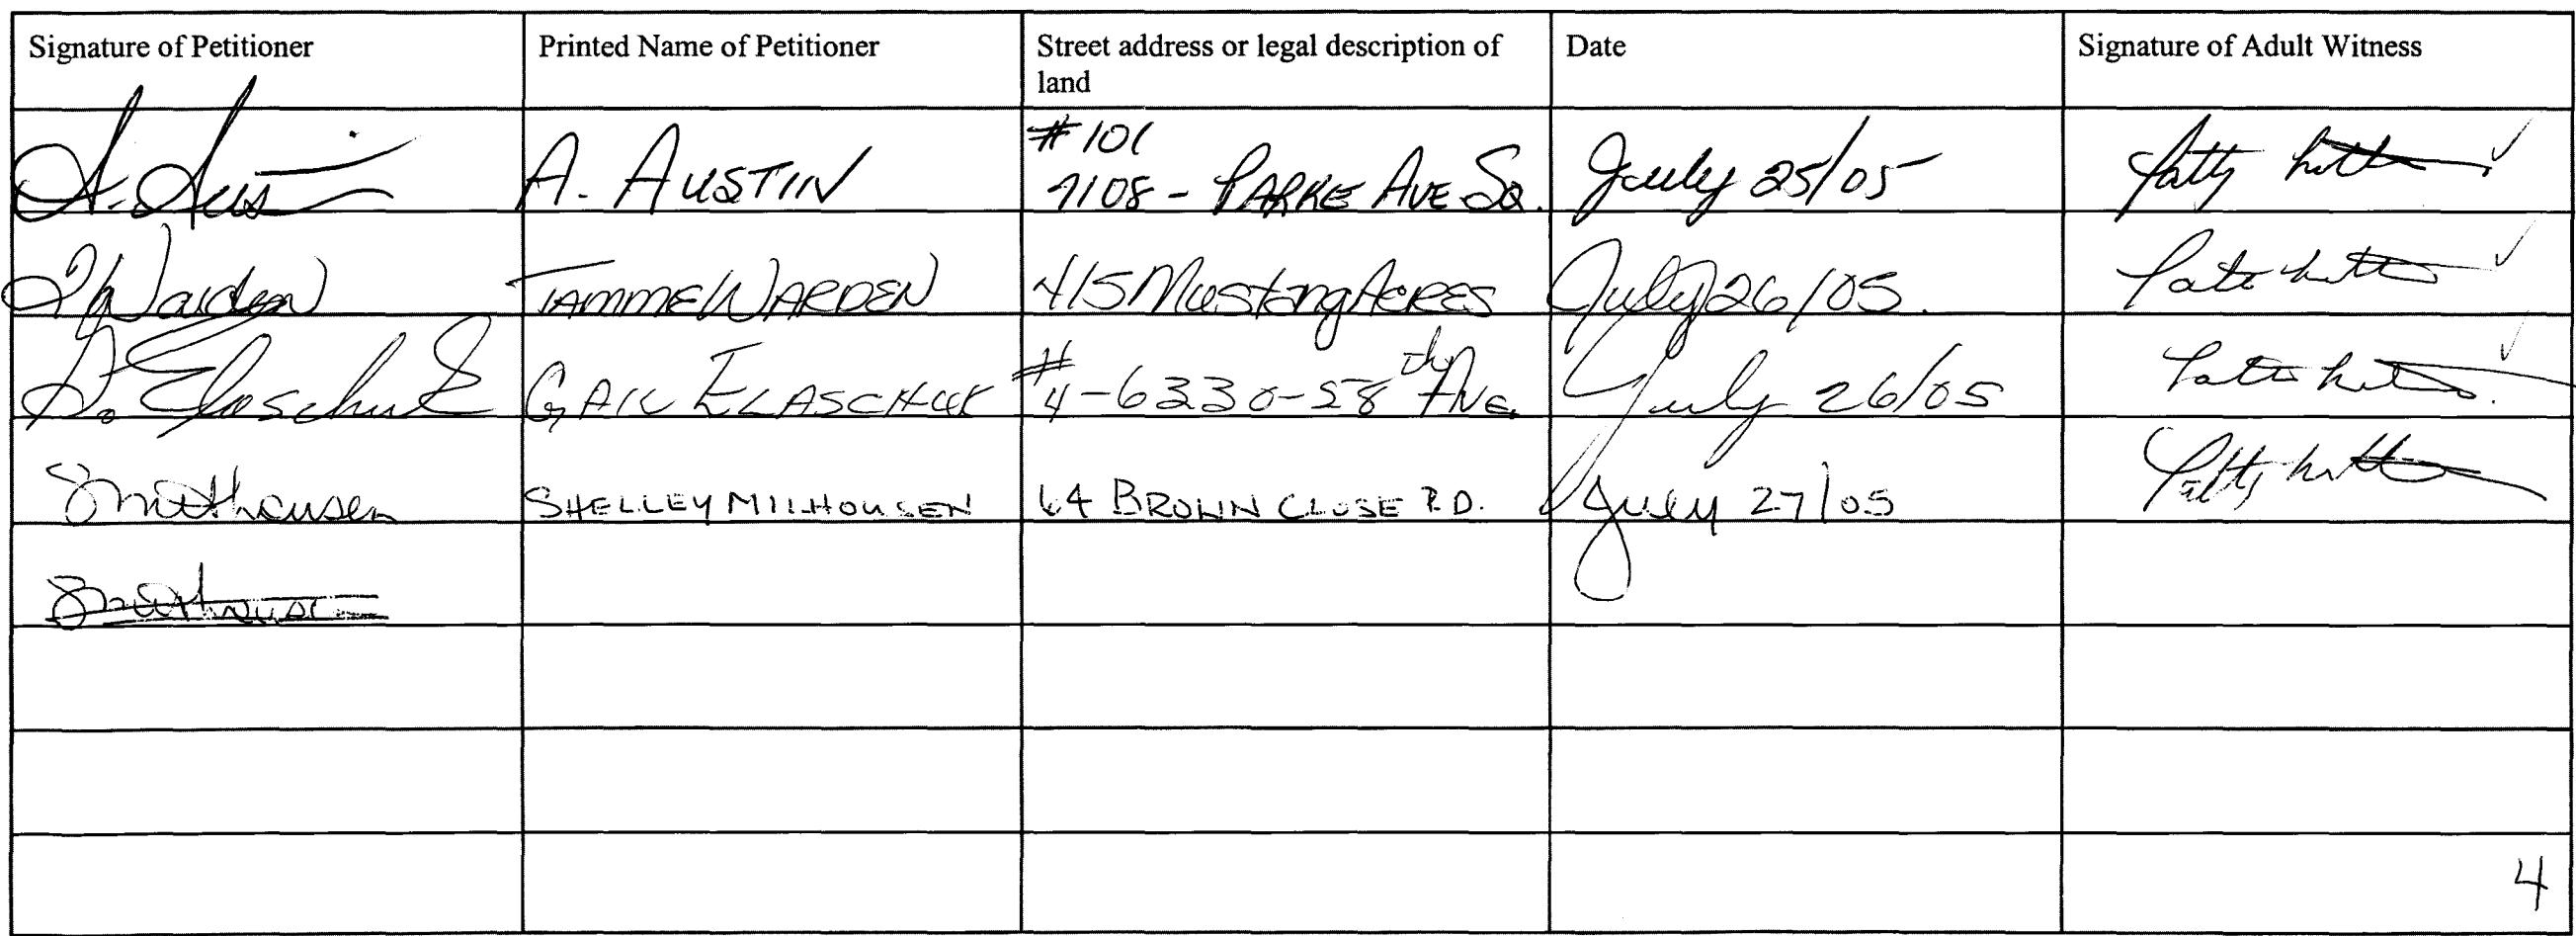 Signature of Petitioner Printed Name of Petitioner Street address or legal description of Date Signature of Adult Witness
land
#101
A. Austin A. AUSTIN 7108 - PARKE AVE SQ. July 25/05 Patty
Warden TAMMIE WARDEN 415 Mustang Acres July 26/05.
G. Elaschuk GAIL ELASCHUK #4-6330-58th Ave. July 26/05
SMilhousen SHELLEY MILHOUSEN 64 BROWN CLOSE R.D. July 27/05 Patty
SMilhouse
4